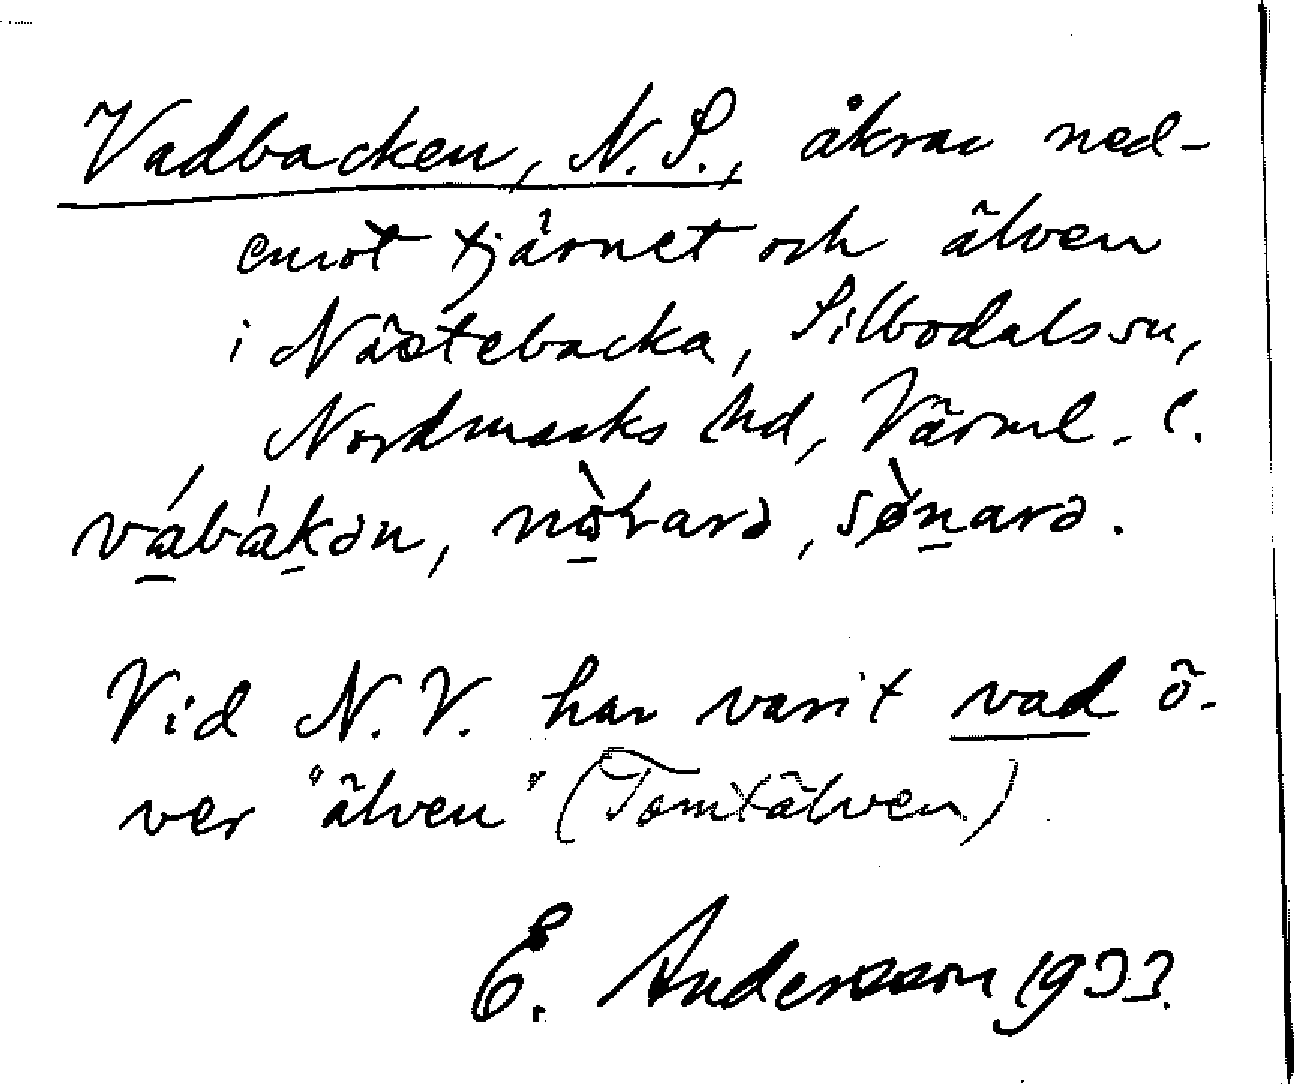 Vadbacken, N. S., åkrar ned-
emot tjärnet och älven
i Nästebacka, Silbodals sn,
Nordmarks hd, Värml. l.
vábákən, nò̱rarə, sø̀ṉarə.
Vid N. V. har varit vad ö-
ver "älven" (Tomtälven)
E. Andersson 1933.